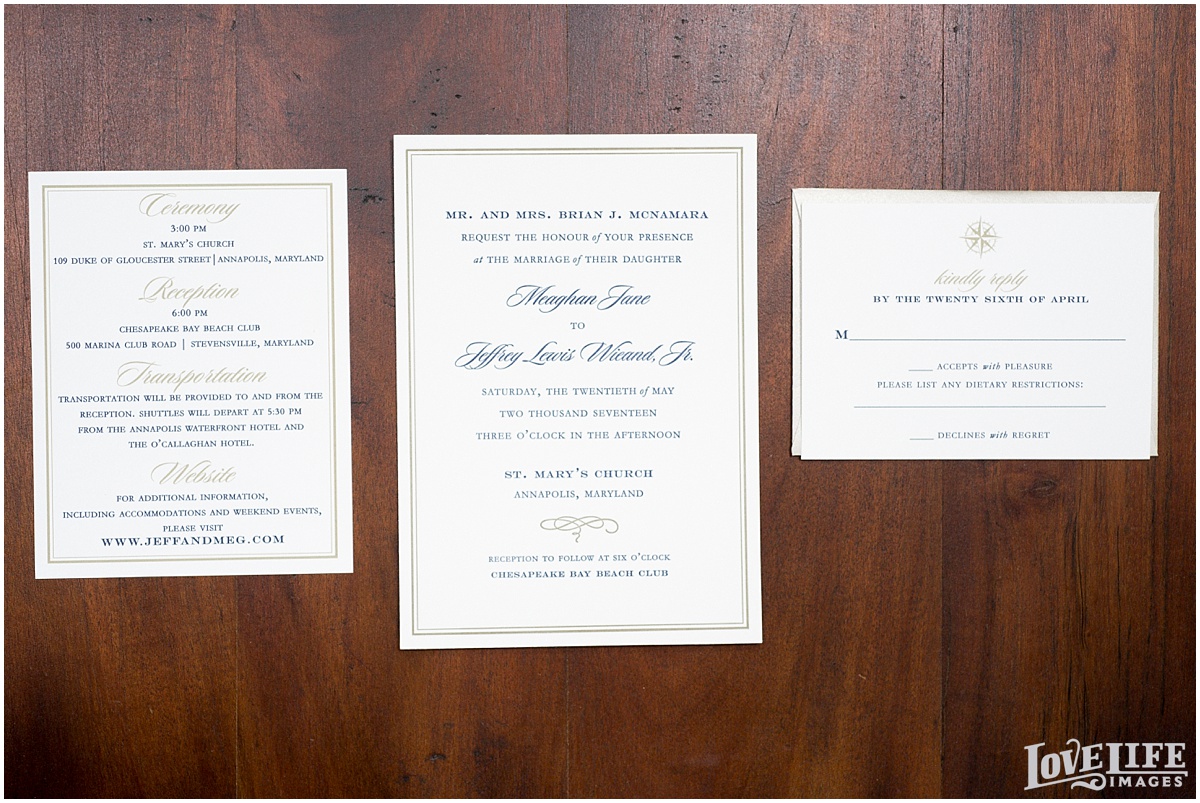 Ceremony
3:00 PM
ST. MARY'S CHURCH
109 DUKE OF GLOUCESTER STREET | ANNAPOLIS, MARYLAND
Reception
6:00 PM
CHESAPEAKE BAY BEACH CLUB
500 MARINA CLUB ROAD | STEVENSVILLE, MARYLAND
Transportation
TRANSPORTATION WILL BE PROVIDED TO AND FROM THE
RECEPTION. SHUTTLES WILL DEPART AT 5:30 PM
FROM THE ANNAPOLIS WATERFRONT HOTEL AND
THE O'CALLAGHAN HOTEL.
Website
FOR ADDITIONAL INFORMATION,
INCLUDING ACCOMMODATIONS AND WEEKEND EVENTS,
PLEASE VISIT
WWW.JEFFANDMEG.COM
MR. AND MRS. BRIAN J. MCNAMARA
REQUEST THE HONOUR of YOUR PRESENCE
at THE MARRIAGE of THEIR DAUGHTER
Meaghan Jane
TO
Jeffrey Lewis Wieand, Jr.
SATURDAY, THE TWENTIETH of MAY
TWO THOUSAND SEVENTEEN
THREE O'CLOCK IN THE AFTERNOON
ST. MARY'S CHURCH
ANNAPOLIS, MARYLAND
RECEPTION TO FOLLOW AT SIX O'CLOCK
CHESAPEAKE BAY BEACH CLUB
kindly reply
BY THE TWENTY SIXTH OF APRIL
M
ACCEPTS with PLEASURE
PLEASE LIST ANY DIETARY RESTRICTIONS:
DECLINES with REGRET
LOVE LIFE
IMAGES